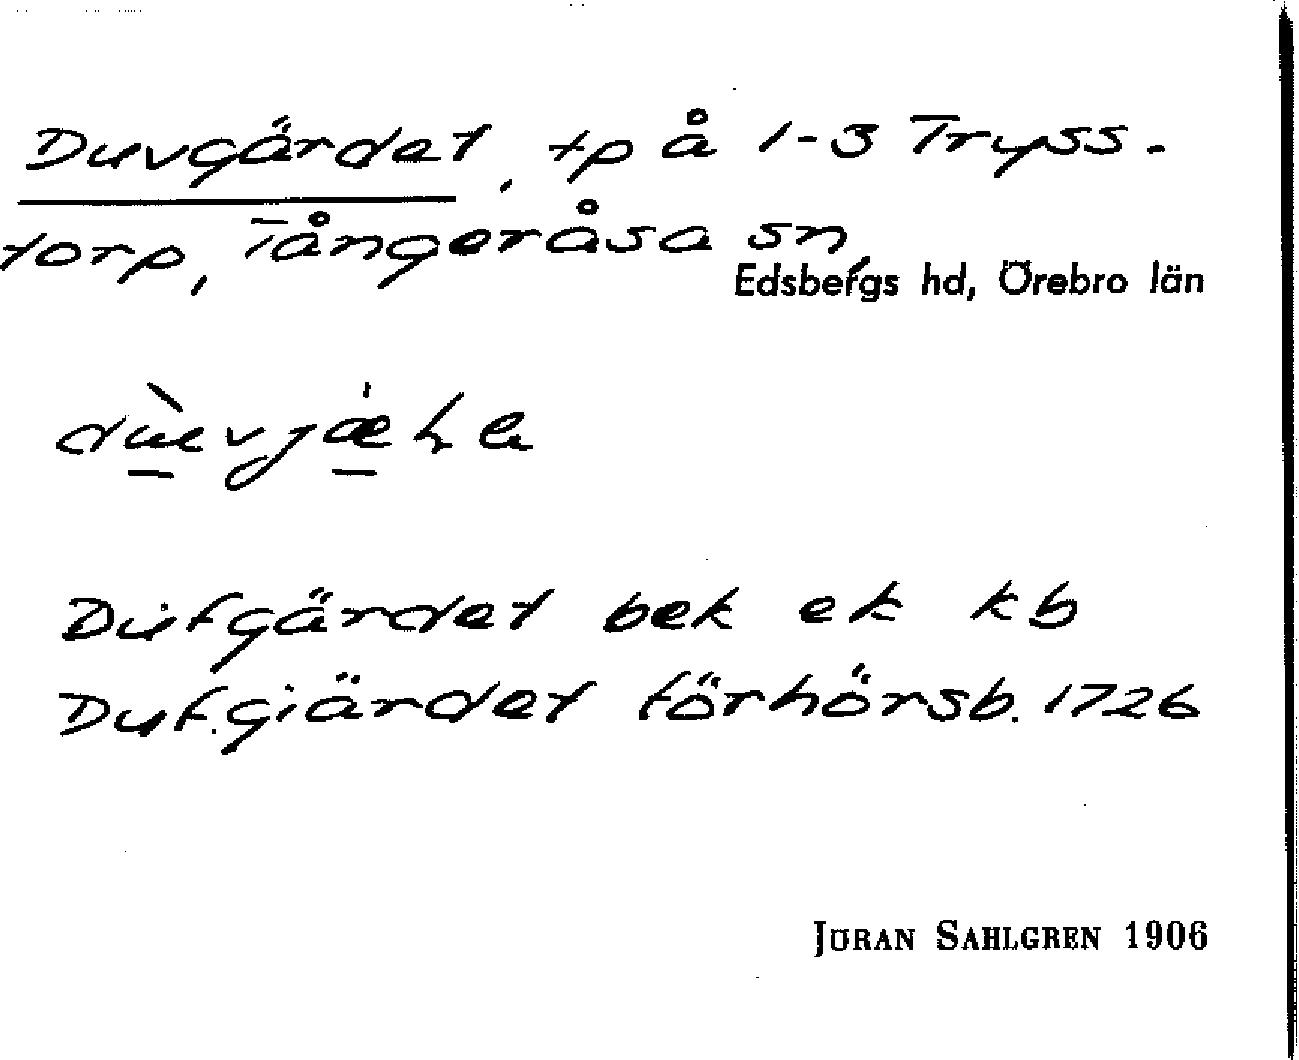 Duvgärdet, tp å 1-3 Tryss-
torp, Tångeråsa sn,
Edsbergs hd, Örebro län
Dufgärdet bek ek kb
Dufgiärdet förhörsb. 1726
JÖRAN SAHLGREN 1906